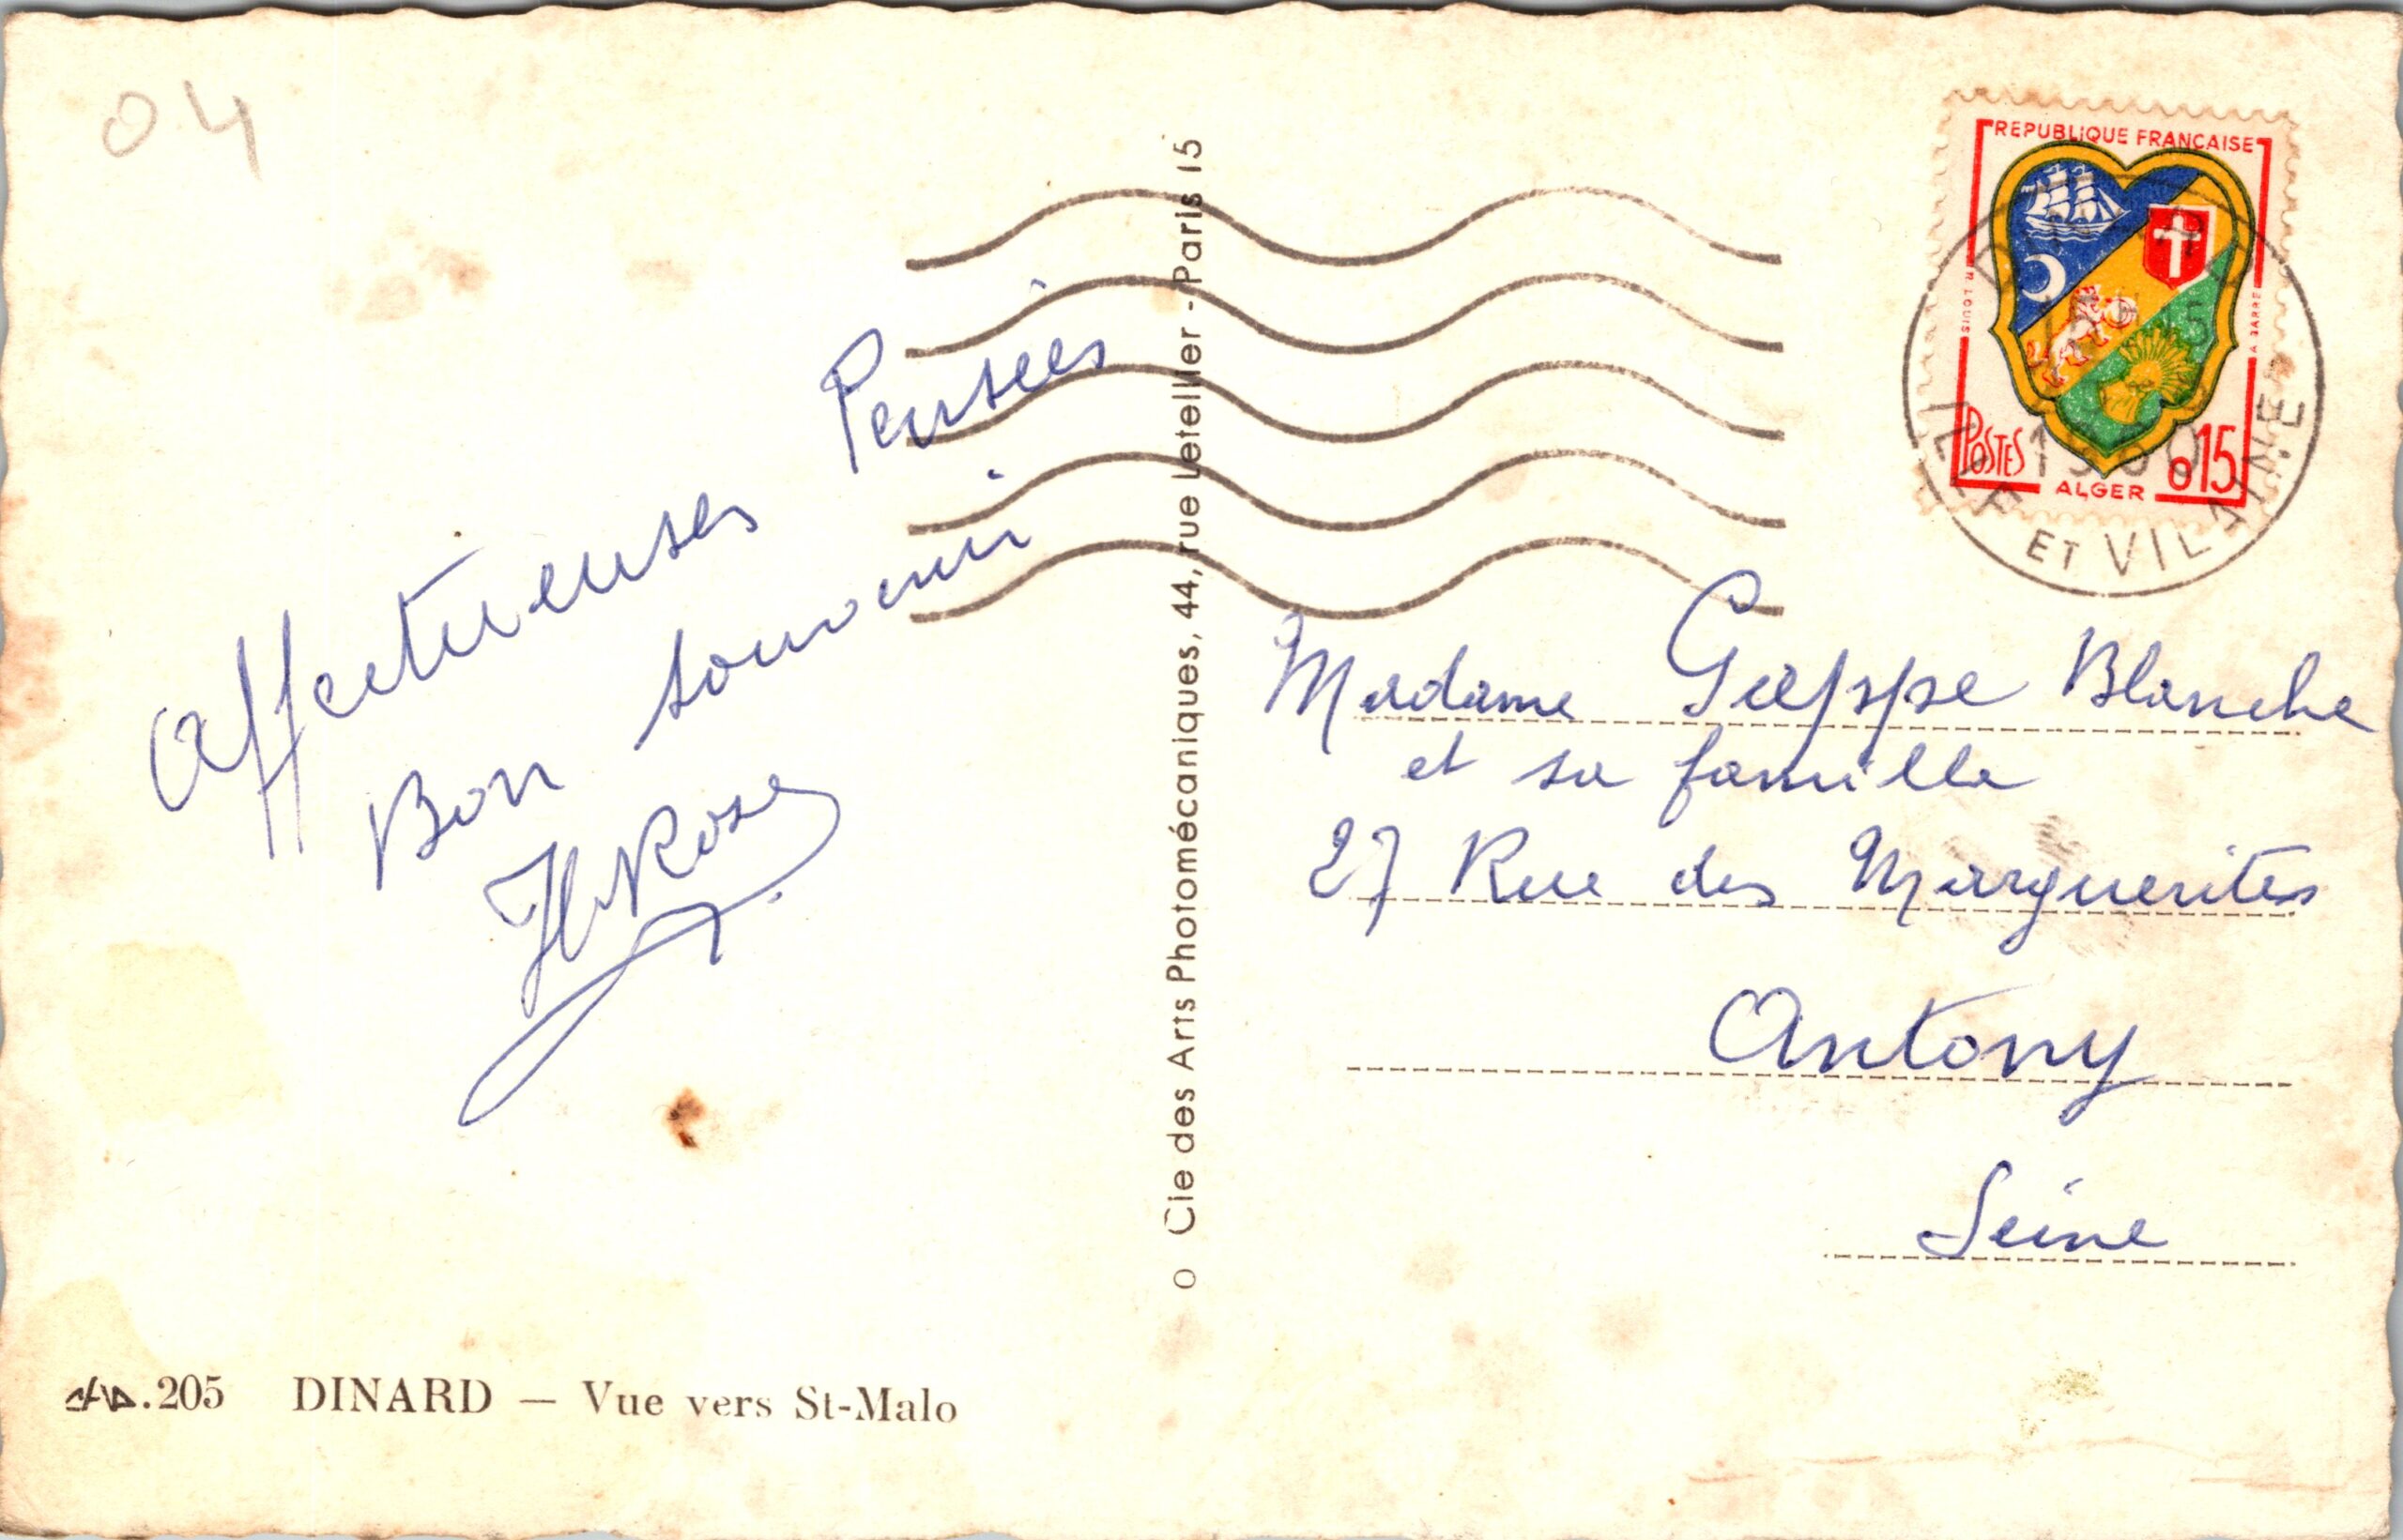 04
Affectueuses Pensées
Bon souvenir
o Cie des Arts Photomécaniques, 44, rue Letellier - Paris 15
REPUBLIQUE FRANÇAISE
POSTES 0,15
ALGER
1960
ILLE ET VILAINE
Madame Blanche
et sa famille
27 Rue des Marguerites
Antony
Seine
.205 DINARD — Vue vers St-Malo